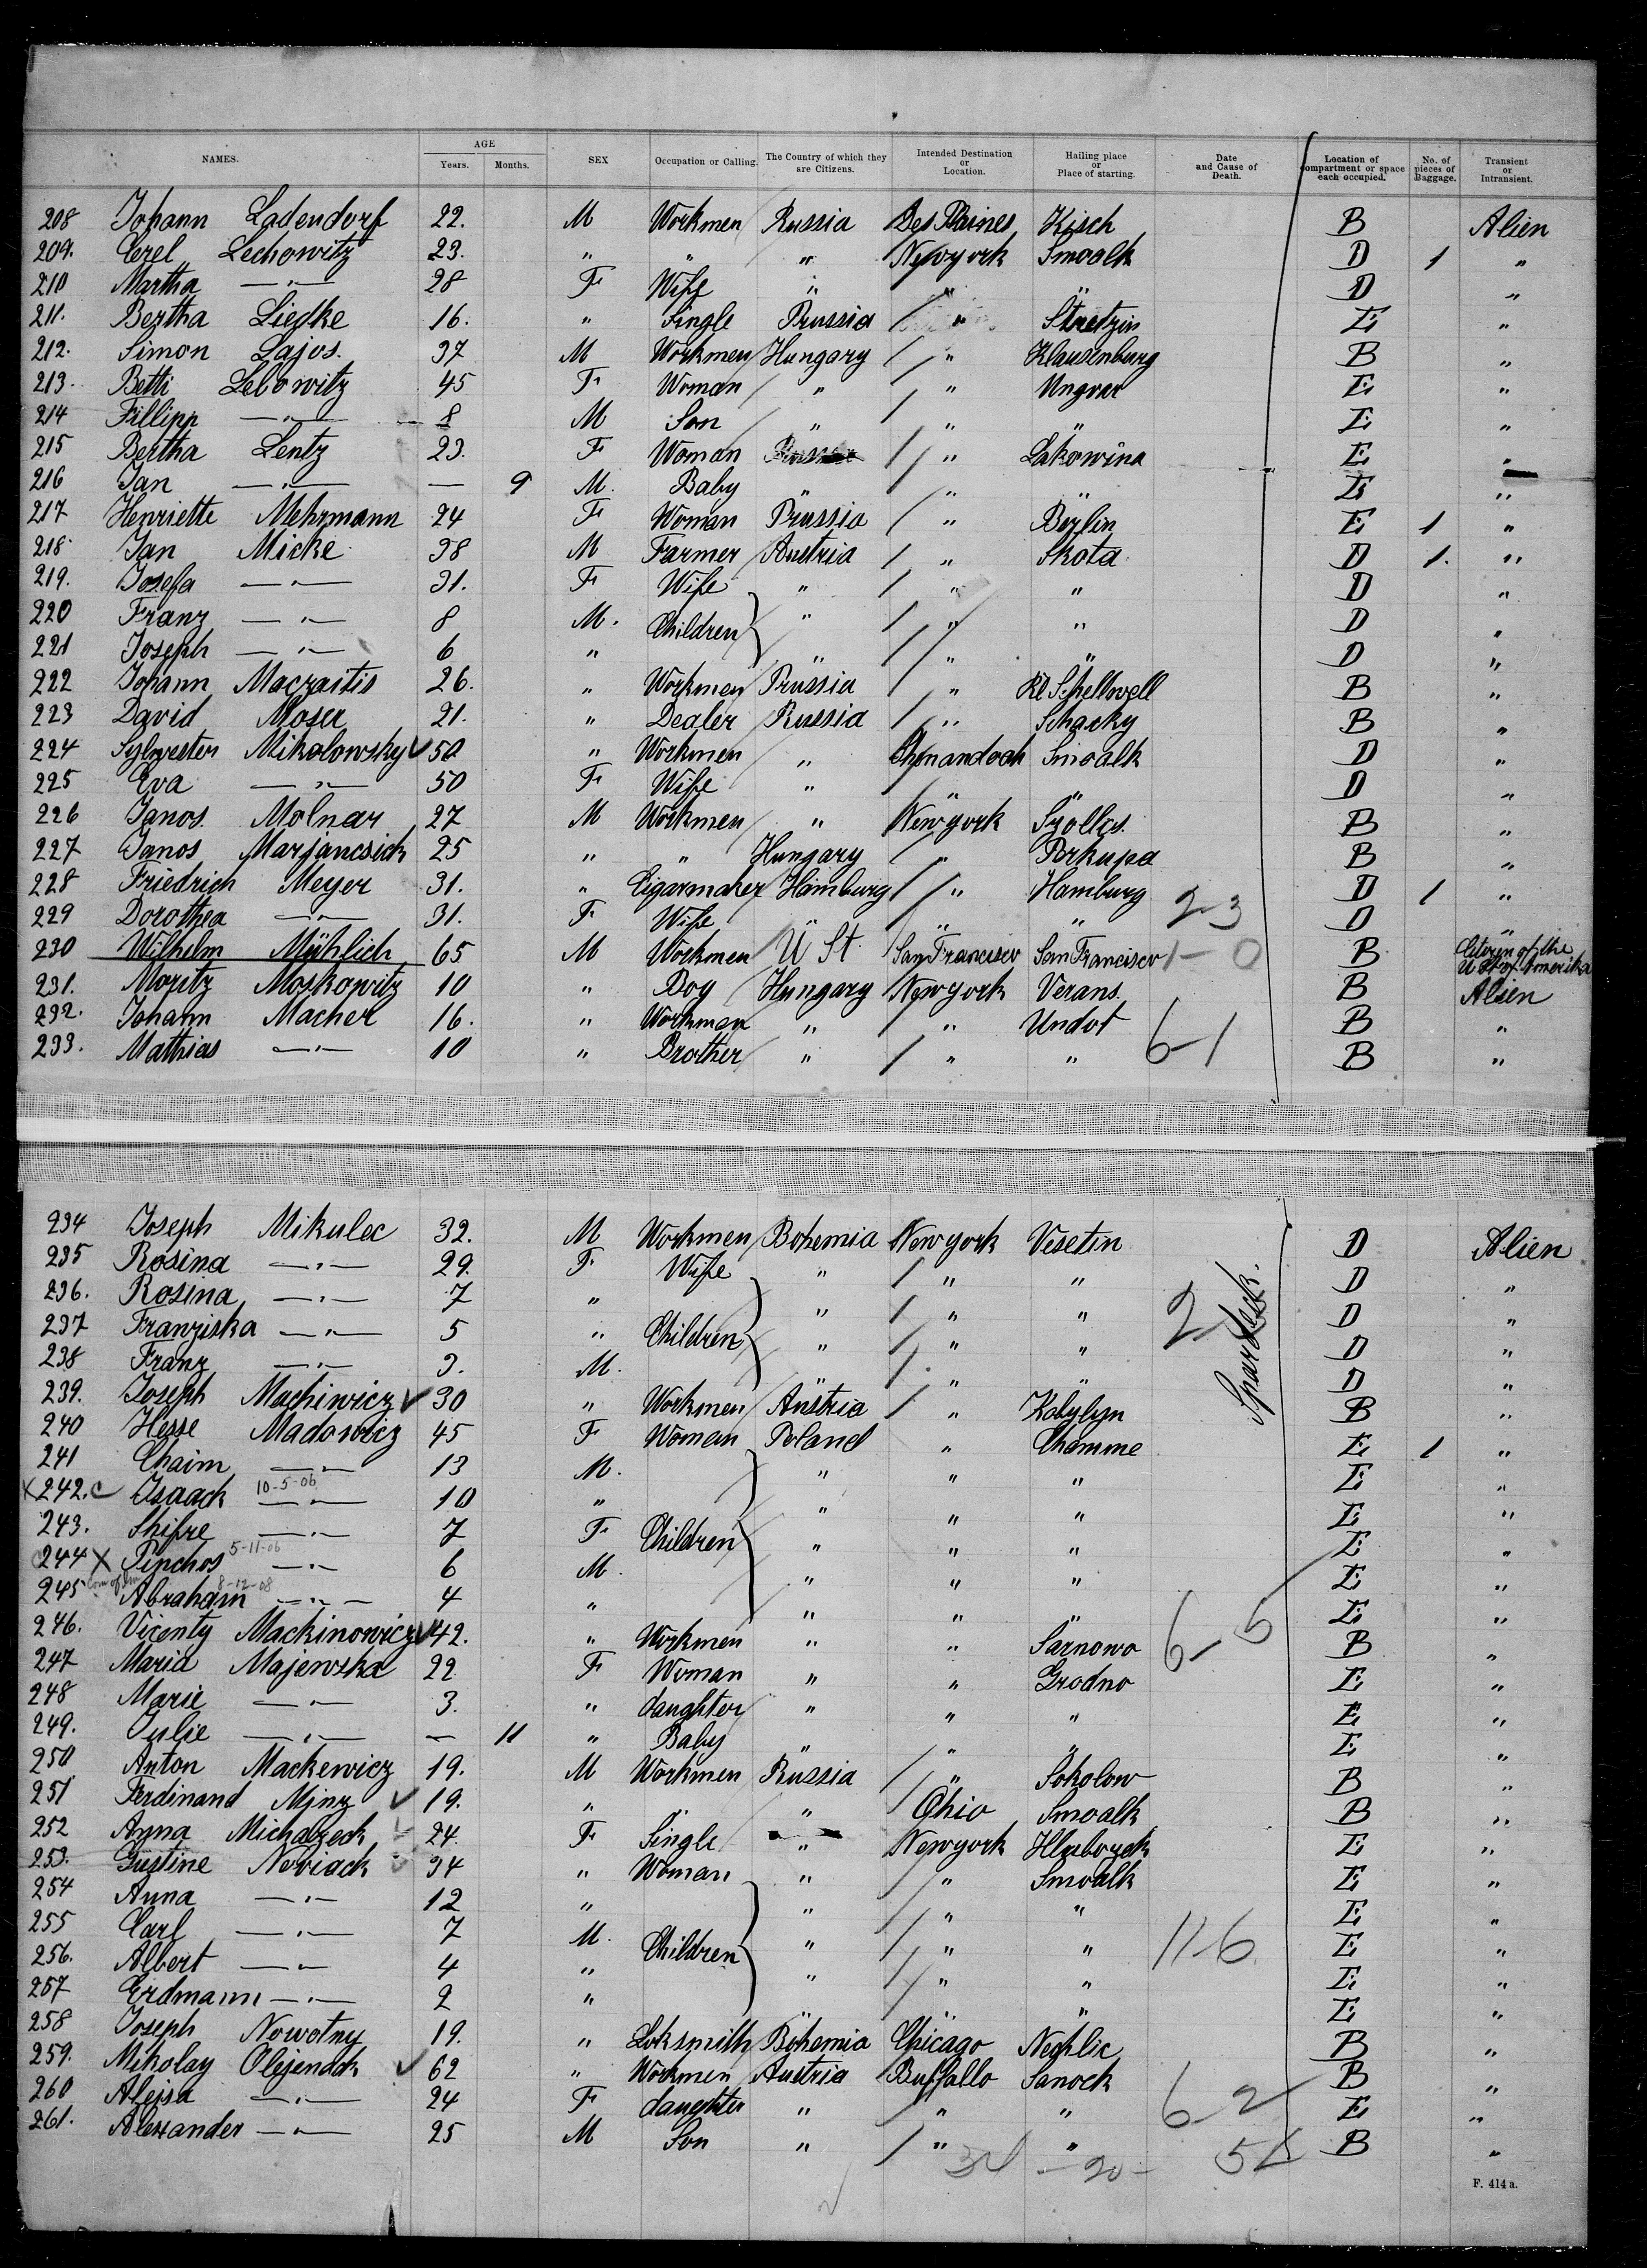 NAMES. AGE Years. Months. SEX Occupation or Calling. The Country of which they are Citizens. Intended Destination or Location. Hailing place or Place of starting. Date and Cause of Death. Location of compartment or space each occupied. No. of pieces of Baggage. Transient or Intransient.
208 Johann Ladendorf 22. M Workmen Russia Des Plaines Kisch B Alien
209. Cerel Lechowitz 23. " " " Newyork Smoalk D 1 "
210 Martha —"— 28 F Wife " " " D "
211. Bertha Liedke 16. " Single Prussia " Stretzin E "
212. Simon Lajos. 37 M Workmen Hungary " Klausenburg B "
213. Betti Lebowitz 45 F Woman " " Ungvar E "
214 Fillipp —"— 8 M Son " " " E "
215 Bertha Lentz 23. F Woman " Lakowina E "
216 Jan —"— — 9 M. Baby " " " E "
217 Henriette Mehrmann 24 F Woman Prussia " Berlin E 1 "
218. Jan Micke 38 M Farmer Austria " Skota D 1. "
219. Josefa —"— 31. F Wife " " " D "
220 Franz —"— 8 M. Children " " " D "
221 Joseph —"— 6 " " " " D "
222 Johann Macraitis 26. " Workmen Prussia " Kl Schellovell B "
223 David Moser 21. " Dealer Russia " Schacky B "
224 Sylvester Mikolowsky 50 " Workmen " Shenandoah Smoalk D "
225 Eva —"— 50 F Wife " " " D "
226 Janos. Molnar 27 M Workmen " Newyork Szollos B "
227 Janos Marjancsich 25 " " Hungary " Perkupa B "
228 Friedrich Meyer 31. " Cigarmaker Hamburg " Hamburg D 1 "
229 Dorothea —"— 31. F Wife " " " 2-3 D "
230 Wilhelm Mühlich 65 M Workmen U St. San Francisco San Francisco 1-0 B Citizen of the U St of Amerika
231. Moritz Moskowitz 10 " Boy Hungary Newyork Verans. B Alien
232. Johann Macher 16. " Workmen " " Undot 6-1 B "
233. Mathias —"— 10 " Brother " " " B "
234 Joseph Mikulec 32. M Workmen Bohemia Newyork Vesetin D Alien
235 Rosina —"— 29. F Wife " " " D "
236. Rosina —"— 7 " Children " " " 2 D "
237 Franziska —"— 5 " " " " D "
238 Franz —"— 3. M. " " " D "
239. Joseph Machiwicz 30 " Workmen Austria " Kobylyn B "
240 Hesse Madowicz 45 F Woman Poland " Chamme E 1 "
241 Chaim —"— 13 M. " " " E "
X 242. c Isaack 10-5-06 —"— 10 " " " " E "
243. Shifre —"— 7 F Children " " " E "
244 X Pinchos 5-11-06 —"— 6 M. " " " E "
245 Abraham 8-12-08 —"— 4 " " " " E "
246. Vicenty Mackinowicz 42. " Workmen " " Sarnowo 6-5 B "
247 Maria Majewska 22 F Woman " " Grodno E "
248 Marie —"— 3. " daughter " " " E "
249. Julie —"— — 11 " Baby " " " E "
250 Anton Mackewicz 19. M Workmen Russia " Sokolow B "
251 Ferdinand Minz 19. " " " Ohio Smoalk B "
252 Anna Michalzeck 24 F Single " Newyork Hluboyck E "
253. Güstine Noviack 34 " Woman " " Smoalk E "
254 Anna —"— 12 " " " " E "
255 Carl —"— 7 M. Children " " " 11-6 E "
256. Albert —"— 4 " " " " E "
257 Erdmann —"— 2 " " " " E "
258 Joseph Nowotny 19. " Loksmith Bohemia Chicago Nechlic B "
259. Mikolay Olejenack 62 " Workmen Austria Buffallo Sanock B "
260 Alejsa —"— 24 F daughter " " " 6-2 E "
261. Alexander —"— 25 M Son " " " B "
34 - 20 - 54
F. 414 a.